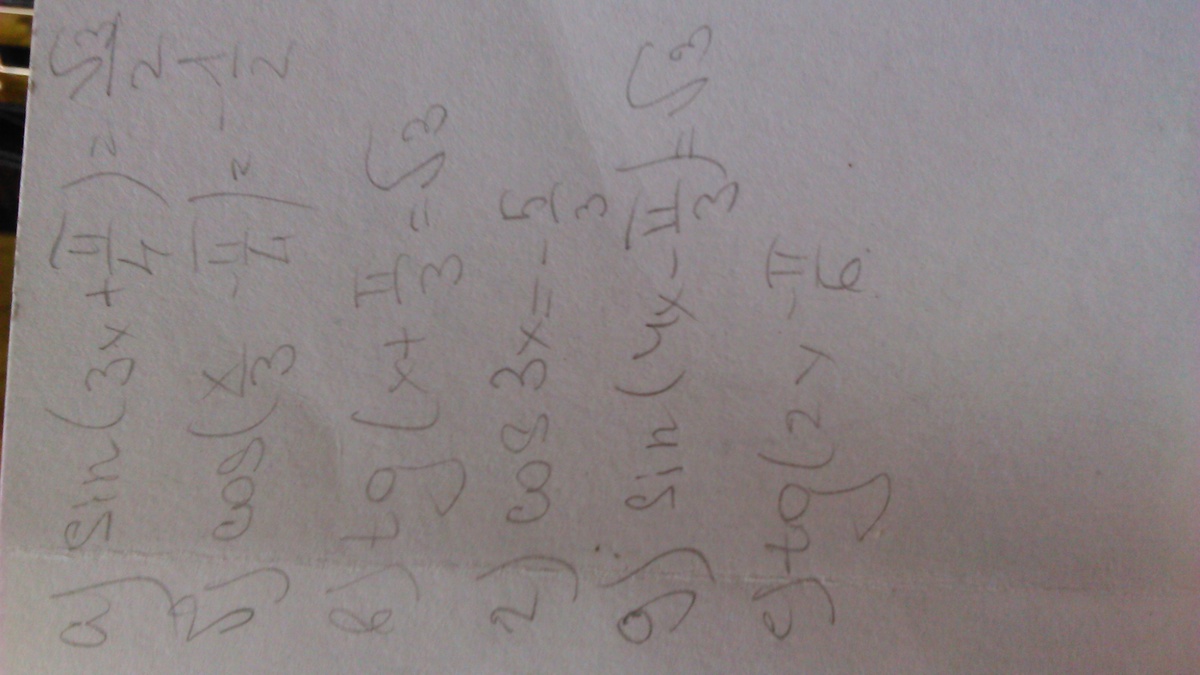 а) sin(3x + π/4) = √3/2
б) cos(x/3 - π/4) = -1/2
в) tg(x + π/3 = √3
г) cos 3x = -5/3
д) sin(4x - π/3) = √3
е) tg(2x - π/6